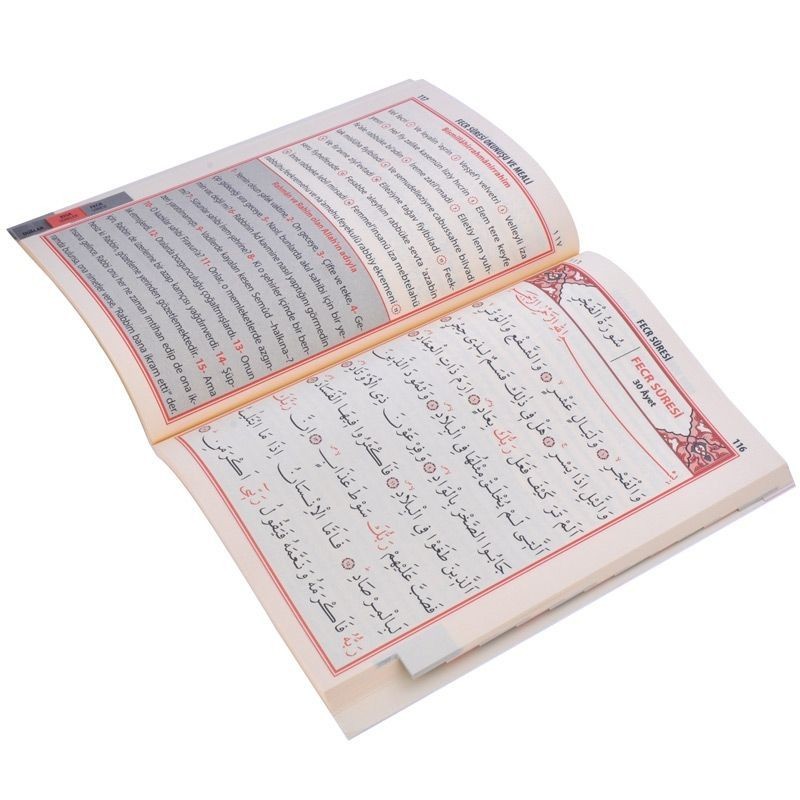 116
FECR SÛRESİ
FECR SÛRESİ
30 Âyet
سُورَةُ الْفَجْرِ
بِسْمِ اللّٰهِ الرَّحْمٰنِ الرَّحِيمِ
وَالْفَجْرِ ١ وَلَيَالٍ عَشْرٍ ٢ وَالشَّفْعِ وَالْوَتْرِ ٣
وَالَّيْلِ اِذَا يَسْرِ ٤ هَلْ فِى ذٰلِكَ قَسَمٌ لِذِى حِجْرٍ ٥
اَلَمْ تَرَ كَيْفَ فَعَلَ رَبُّكَ بِعَادٍ ٦ اِرَمَ ذَاتِ الْعِمَادِ ٧
اَلَّتِى لَمْ يُخْلَقْ مِثْلُهَا فِى الْبِلَادِ ٨ وَثَمُودَ الَّذِينَ
جَابُوا الصَّخْرَ بِالْوَادِ ٩ وَفِرْعَوْنَ ذِى الْاَوْتَادِ ١٠
اَلَّذِينَ طَغَوْا فِى الْبِلَادِ ١١ فَاَكْثَرُوا فِيهَا الْفَسَادَ ١٢
فَصَبَّ عَلَيْهِمْ رَبُّكَ سَوْطَ عَذَابٍ ١٣ اِنَّ رَبَّكَ
لَبِالْمِرْصَادِ ١٤ فَاَمَّا الْاِنْسَانُ اِذَا مَا ابْتَلٰيهُ
رَبُّهُ فَاَكْرَمَهُ وَنَعَّمَهُ فَيَقُولُ رَبِّى اَكْرَمَنِ
117
FECR SÛRESİ OKUNUŞU VE MEALİ
١١٧
Bismillâhirrahmânirrahîm
Vel fecri 1 Ve leyalin 'aşrin 2 Veşşef'ı velvetri 3 Velleyli iza
yesri 4 Hel fiy zalike kasemün lizîy hıcrin 5 Elem tere keyfe
fe'ale rabbüke bi'adin 6 İreme zatil'ımadi 7 Elletiy lem yuh-
lak mislüha fiylbiladi 8 Ve semudelleziyne cabussahre bilvadi
9 Ve fir'avne ziyl'evtadi 10 Elleziyne tağav fiylbiladi 11 Feek-
seru fiyhelfesade 12 Fesabbe 'aleyhim rabbüke sevta 'azabin
13 İnne rabbeke lebil mirsadi 14 Femmel'insanü iza mebtelahü
rabbühu feekremehu ve na'amehu feyekulü rabbiy ekremeni 15
Rahmân ve Rahîm olan Allah'ın adıyla
Yemin olsun şafak vaktine, 2- On geceye. 3- Çifte ve teke, 4- Ge-
çip gideceği sıra geceye. 5- Nasıl, bunlarda akıl sahibi için bir ye-
min var, değil mi? 6- Rabbinin Âd kavmine nasıl yaptığını görmedin
mi? 7- Sütunlar sahibi İrem şehrine? 8- Ki o şehirler içinde bir ben-
zeri yaratılmamıştı. 9- Vadilerde kayaları kesen Semûd –halkına–?
10- O kazıklı sahibi Firavun'a? 11- Onlar, o memleketlerde azgın-
12- Onlarda bozgunculuğu çoğaltmışlardı. 13- Onun
için, Rabbin de üzerine, bir azap kamçısı yağdırıverdi. 14- Şüp-
hesiz ki Rabbin, gözetleme yerinden gözetlemektedir. 15- Ama
insana gelince, Rabbi onu her ne zaman imtihan edip de ona ik-
ramda bulunsa, ona nimetler verse, "Rabbim bana ikram etti" der.
DUALAR